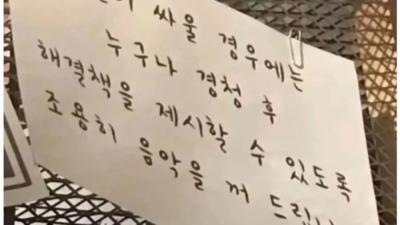 싸울 경우에는
누구나 경청 후
해결책을 제시할 수 있도록
조용히 음악을 꺼